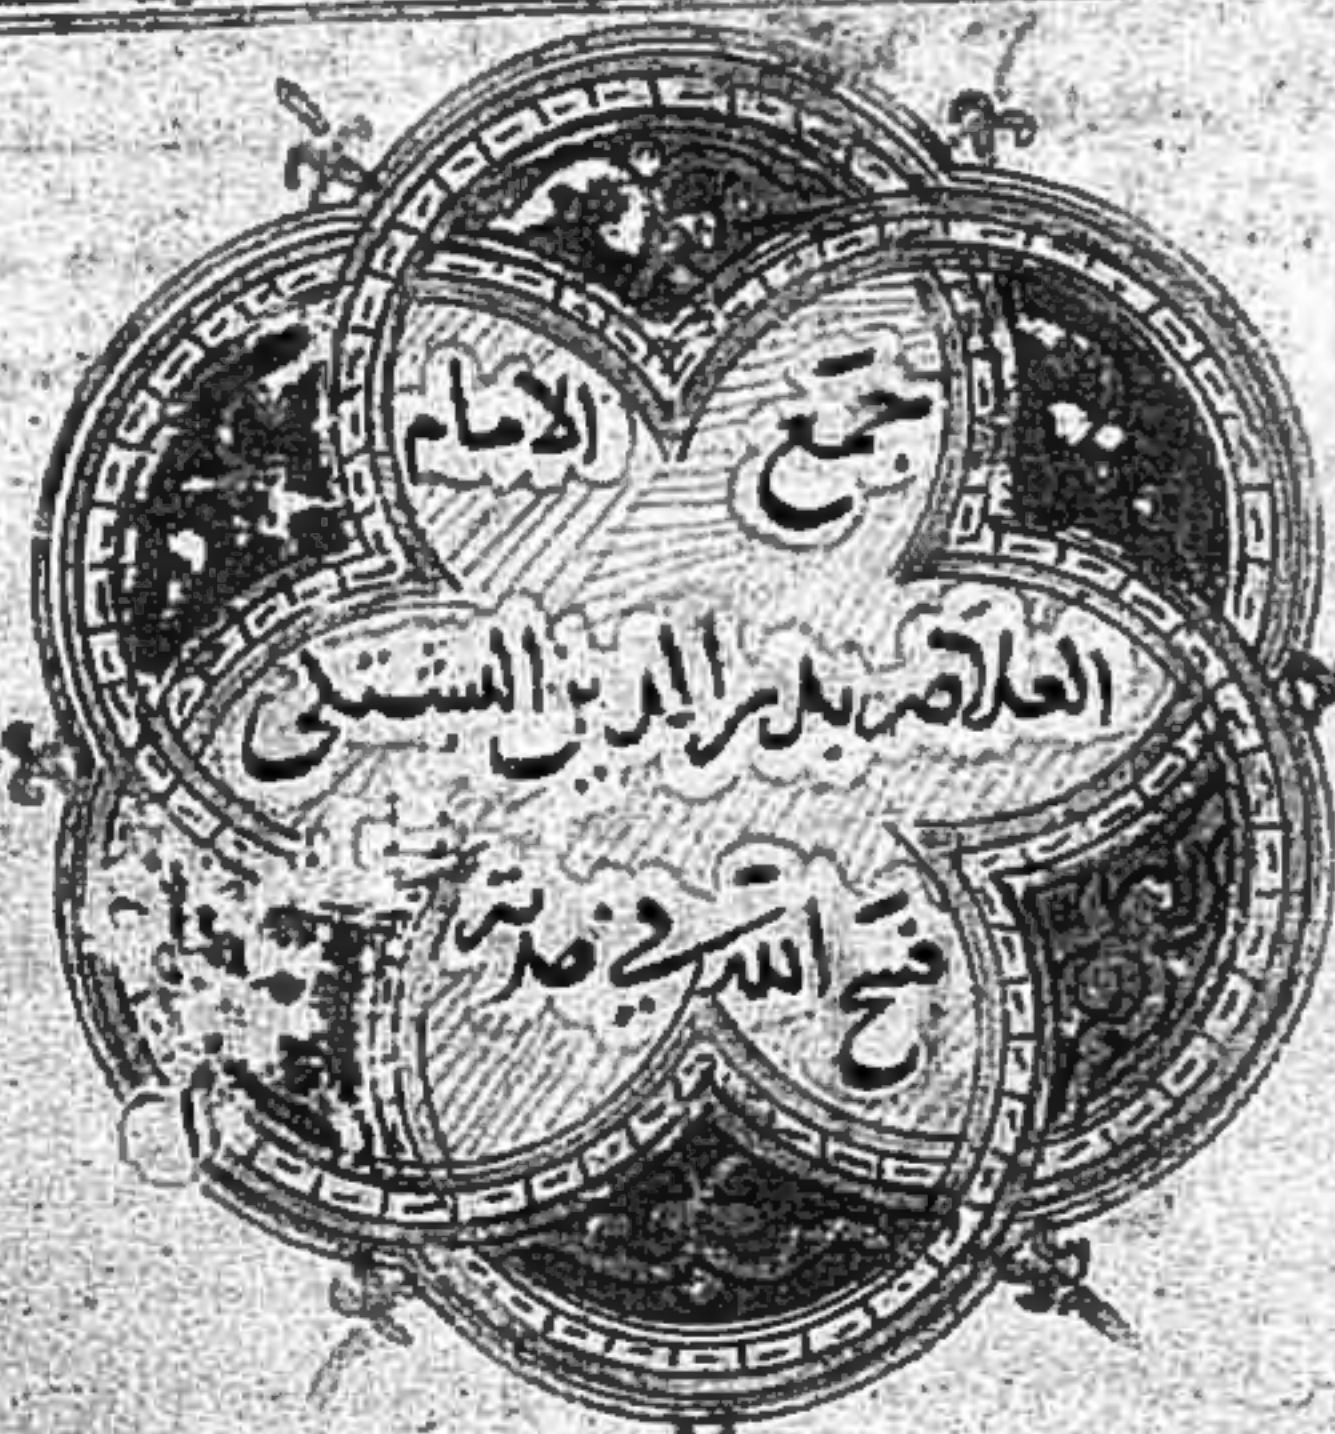 جمع الامام
العلامه بدر الدين البشتكى
فسح الله في مدته